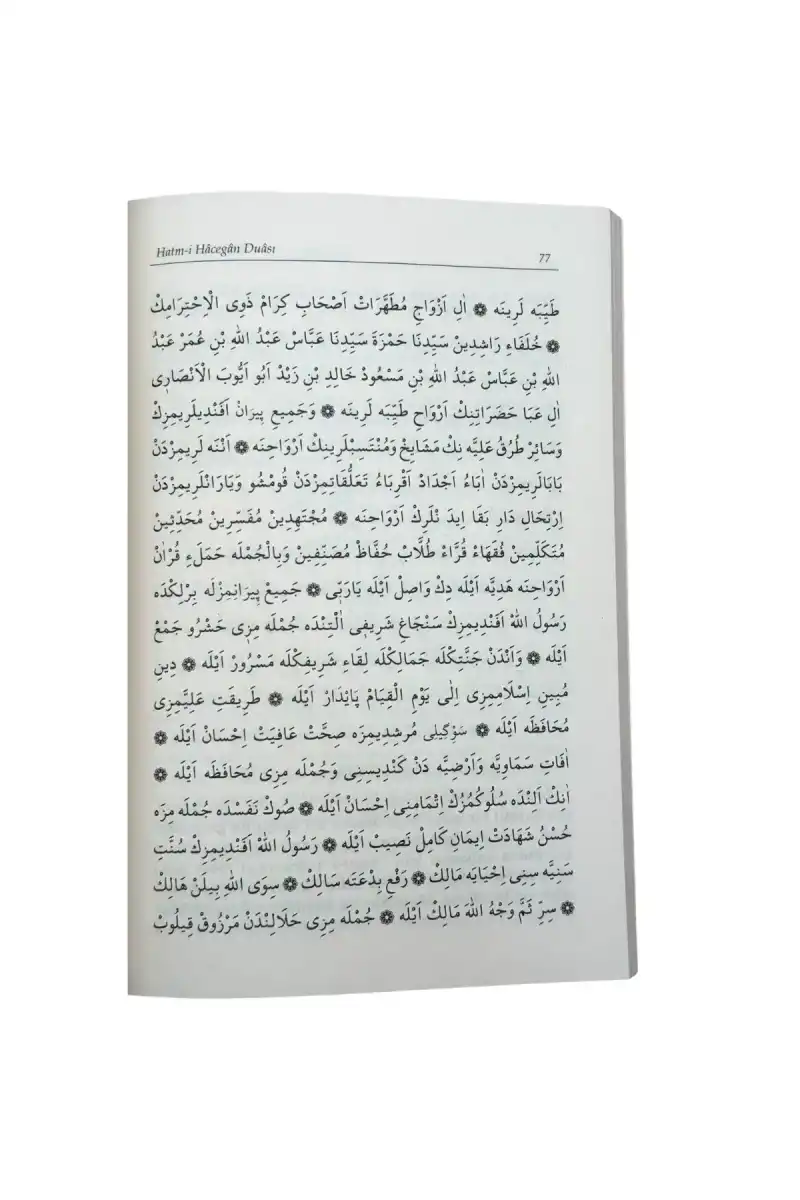 Hatm-i Hâcegân Duâsı
77
طَيِّبَه لَرِينَه ❁ اٰلِ اَزْوَاجِ مُطَهَّرَاتْ اَصْحَابِ كِرَامْ ذَوِى الْاِحْتِرَامِكْ
❁ خُلَفَاءِ رَاشِدِينْ سَيِّدِنَا حَمْزَةَ سَيِّدِنَا عَبَّاسْ عَبْدُ اللّٰهِ بْنِ عُمَرْ عَبْدُ
اللّٰهِ بْنِ عَبَّاسْ عَبْدُ اللّٰهِ بْنِ مَسْعُودْ خَالِدِ بْنِ زَيْدْ اَبُو اَيُّوبَ الْاَنْصَارِى
اٰلِ عَبَا حَضَرَاتِنِكْ اَرْوَاحِ طَيِّبَه لَرِينَه ❁ وَجَمِيعِ پِيرَانْ اَفَنْدِيلَرِيمِزِكْ
وَسَائِرْ طُرُقِ عَلِيَّه نِكْ مَشَايِخْ وَمُنْتَسِبْلَرِينِكْ اَرْوَاحِنَه ❁ اَنْنَه لَرِيمِزْدَنْ
بَابَالَرِيمِزْدَنْ اٰبَاءْ اَجْدَادْ اَقْرِبَاءْ تَعَلُّقَاتِمِزْدَنْ قُومْشُو وَيَارَانْلَرِيمِزْدَنْ
اِرْتِحَالِ دَارِ بَقَا اِيدَ نْلَرِكْ اَرْوَاحِنَه ❁ مُجْتَهِدِينْ مُفَسِّرِينْ مُحَدِّثِينْ
مُتَكَلِّمِينْ فُقَهَاءْ قُرَّاءْ طُلَّابْ حُفَّاظْ مُصَنِّفِينْ وَبِالْجُمْلَه حَمَلَءِ قُرْاٰنْ
اَرْوَاحِنَه هَدِيَّه اَيْلَه دِكْ وَاصِلْ اَيْلَه يَارَبِّى ❁ جَمِيعْ پِيرَانِمِزْلَه بِرْلِكْدَه
رَسُولُ اللّٰهْ اَفَنْدِيمِزِكْ سَنْجَاغِ شَرِيفِى اَلْتِنْدَه جُمْلَه مِزِى حَشْرُو جَمْعْ
اَيْلَه ❁ وَاَنْدَنْ جَنَّتِكْلَه جَمَالِكْلَه لِقَاءِ شَرِيفِكْلَه مَسْرُورْ اَيْلَه ❁ دِينِ
مُبِينِ اِسْلَامِمِزِى اِلٰى يَوْمِ الْقِيَامْ پَايْدَارْ اَيْلَه ❁ طَرِيقَتِ عَلِيَّمِزِى
مُحَافَظَه اَيْلَه ❁ سَوْگِيلِى مُرشِدِيمِزَه صِحَّتْ عَافِيَتْ اِحْسَانْ اَيْلَه ❁
اٰفَاتِ سَمَاوِيَّه وَاَرْضِيَّه دَنْ كَنْدِيسِنِى وَجُمْلَه مِزِى مُحَافَظَه اَيْلَه ❁
اٰنِكْ اَلِنْدَه سُلُوكُمُزُكْ اِتْمَامِنِى اِحْسَانْ اَيْلَه ❁ صُوكْ نَفَسْدَه جُمْلَه مِزَه
حُسْنُ شَهَادَتْ اِيمَانِ كَامِلْ نَصِيبْ اَيْلَه ❁ رَسُولُ اللّٰهْ اَفَنْدِيمِزِكْ سُنَّتِ
سَنِيَّه سِنِى اِحْيَايَه مَالِكْ ❁ رَفْعِ بِدْعَتَه سَالِكْ ❁ سِوَى اللّٰهِ بِيلَنْ هَالِكْ
❁ سِرِّ ثَمَّ وَجْهُ اللّٰهَ مَالِكْ اَيْلَه ❁ جُمْلَه مِزِى حَلَالِنْدَنْ مَرْزُوقْ قِيلُوبْ